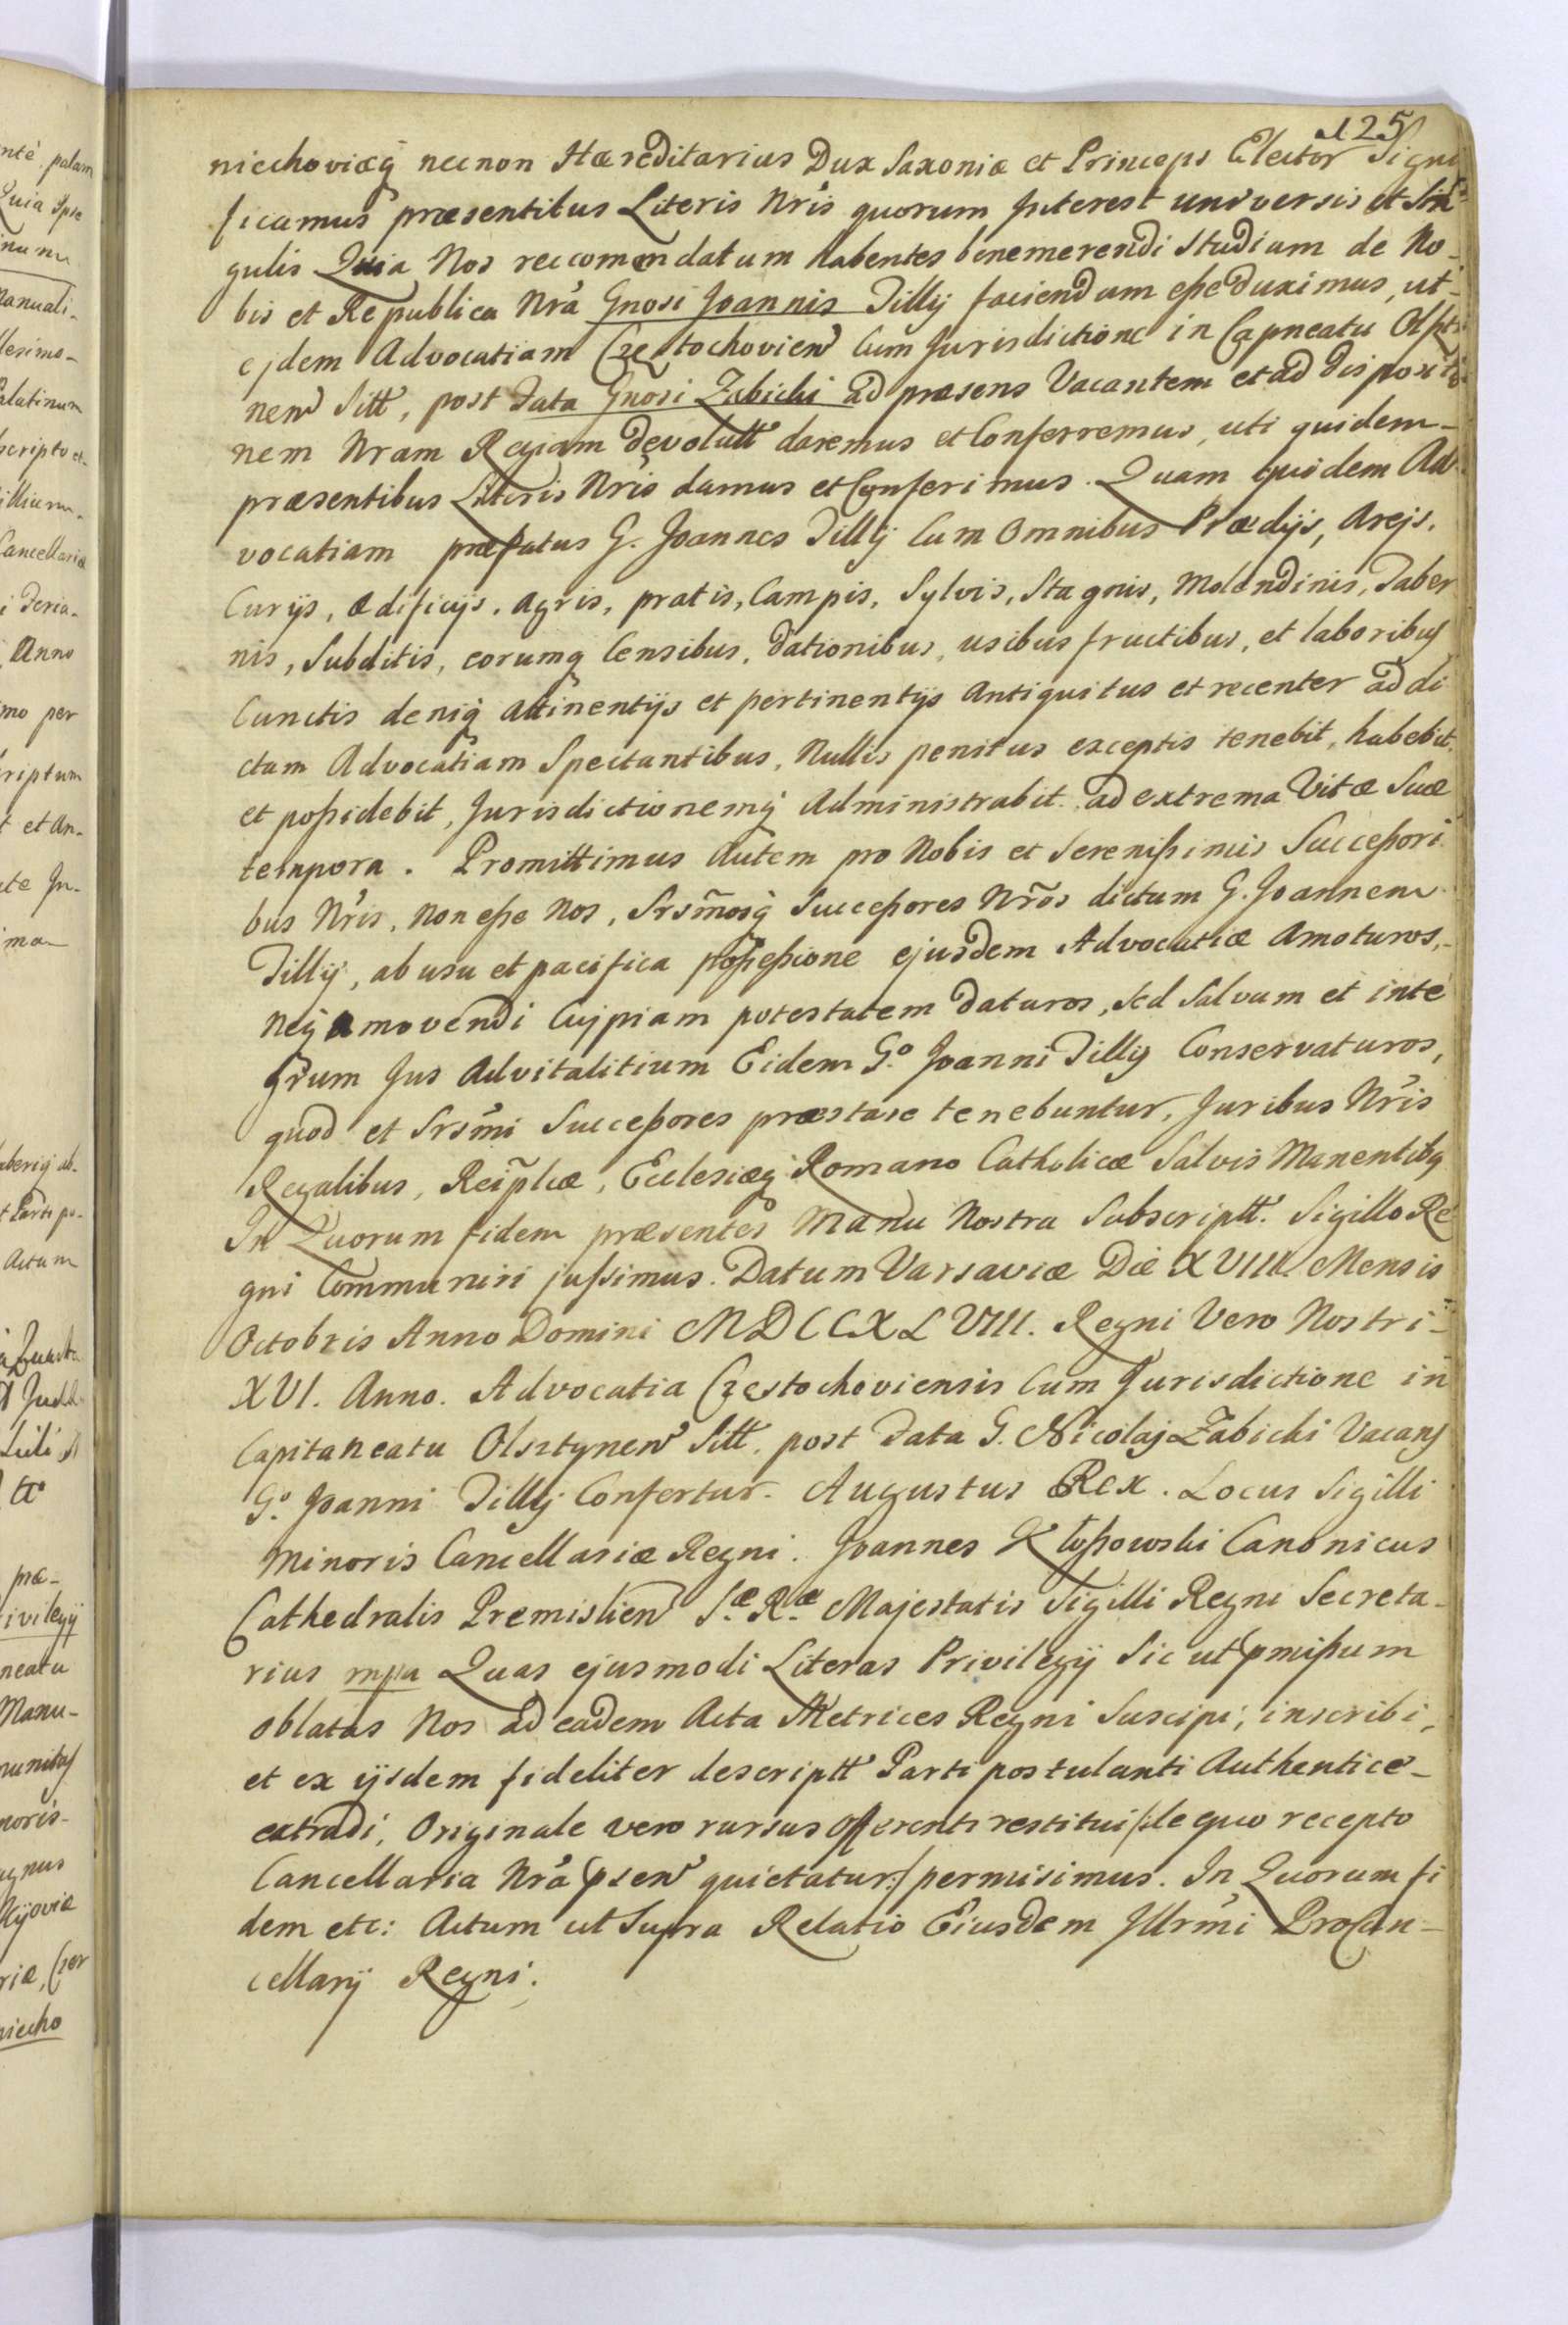 125
niechoviæq necnon Hæreditarius Dux Saxoniæ et Princeps Elector Signi
ficamus præsentibus Literis Nris quorum Interest universis et Sin
gulis Quia Nos reccomendatum habentes benemerendi studium de No-
bis et Republica Nra Gnosi Joannis Tillÿ faciendum eße duximus, ut-
ejdem Advocatiam Częstochovien Cum Jurisdictione in Capneatu Olszty
nen Sitt, post Fata Gnosi Zabicki ad præsens Vacantem et ad dispositio
nem Nram Regiam devolutt daremus et Conferremus, uti quidem-
præsentibus Literis Nris damus et Conferimus. Quam quidem Ad-
vocatiam præfatus G. Joannes Tillÿ Cum Omnibus Prædijs, Arejs,
Curijs, ædificijs, agris, pratis, Campis, Sylvis, Stagnis, Molendinis, Taber
nis, Subditis, eorumq Censibus, dationibus, usibus fructibus, et laboribus
Cunctis deniq attinentijs et pertinentijs Antiquitus et recenter ad di
ctam Advocatiam Spectantibus, Nullis penitus exceptis tenebit, habebit,
et poßidebit, Jurisdictionemq Administrabit ad extrema Vitæ Suæ
tempora. Promittimus Autem pro Nobis et Serenißimis Succeßori
bus Nris, non eße Nos, Srsmosq Succeßores Nros dictum G. Joannem
Tillÿ, ab usu et pacifica poßeßione ejusdem Advocatiæ Amoturos,-
neq amovendi Cujpiam potestatem daturos, sed Salvum et inte
grum Jus Advitalitium Eidem Go. Joanni Tillÿ Conservaturos,
quod et Srsmi Succeßores præstare tenebuntur, Juribus Nris
Regalibus, Reiplcæ, Ecclesiæq Romano Catholicæ Salvis Manentibq
In Quorum fidem præsentes Manu Nostra Subscriptt. Sigillo Re
gni Communiri jußimus. Datum Varsaviæ Die XVIII Mensis
Octobris Anno Domini MDCCXLVIII. Regni Vero Nostri-
XVI. Anno. Advocatia Czestochoviensis Cum Jurisdictione in
Capitaneatu Olsztynen Sitt. post Fata G. Nicolaj Zabicki Vacans
Go. Joanni Tillÿ Confertur. Augustus Rex. Locus Sigilli
Minoris Cancellariæ Regni. Joannes Kłoßowski Canonicus
Cathedralis Premislien Sæ. Ræ. Majestatis Sigilli Regni Secreta-
rius mpa Quas ejusmodi Literas Privilegij Sic ut pmißum
oblatas Nos ad eadem Acta Metrices Regni Suscipi, inscribi,
et ex ijsdem fideliter descriptt Parti postulanti Authentice-
extradi, Originale vero rursus Offerenti restitui /:de quo recepto
Cancellaria Nra psen quietatur:/ permisimus. In Quorum fi
dem etc: Actum ut Supra Relatio Eiusdem Illrmi ProCan-
cellarij Regni.